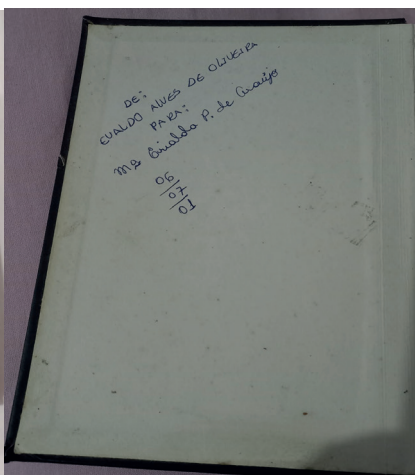 DE:
EVALDO ALVES DE OLIVEIRA
PARA:
Mª P. de Araújo
06
07
01